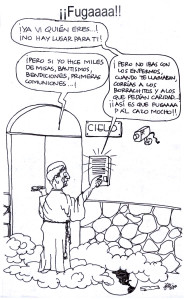 ¡¡Fugaaaa!!
¡YA VI QUIÉN ERES...!
¡NO HAY LUGAR PARA TI!
¡PERO SI YO HICE MILES
DE MISAS, BAUTISMOS,
BENDICIONES, PRIMERAS
COMUNIONES...!
¡PERO NO IBAS CON
LOS ENFERMOS,
CUANDO TE LLAMABAN,
CORRÍAS A LOS
BORRACHITOS Y A LOS
QUE PEDÍAN CARIDAD...
¡¡ASÍ ES QUE FUGAAAA
P'AL CAZO MOCHO!!
CIELO